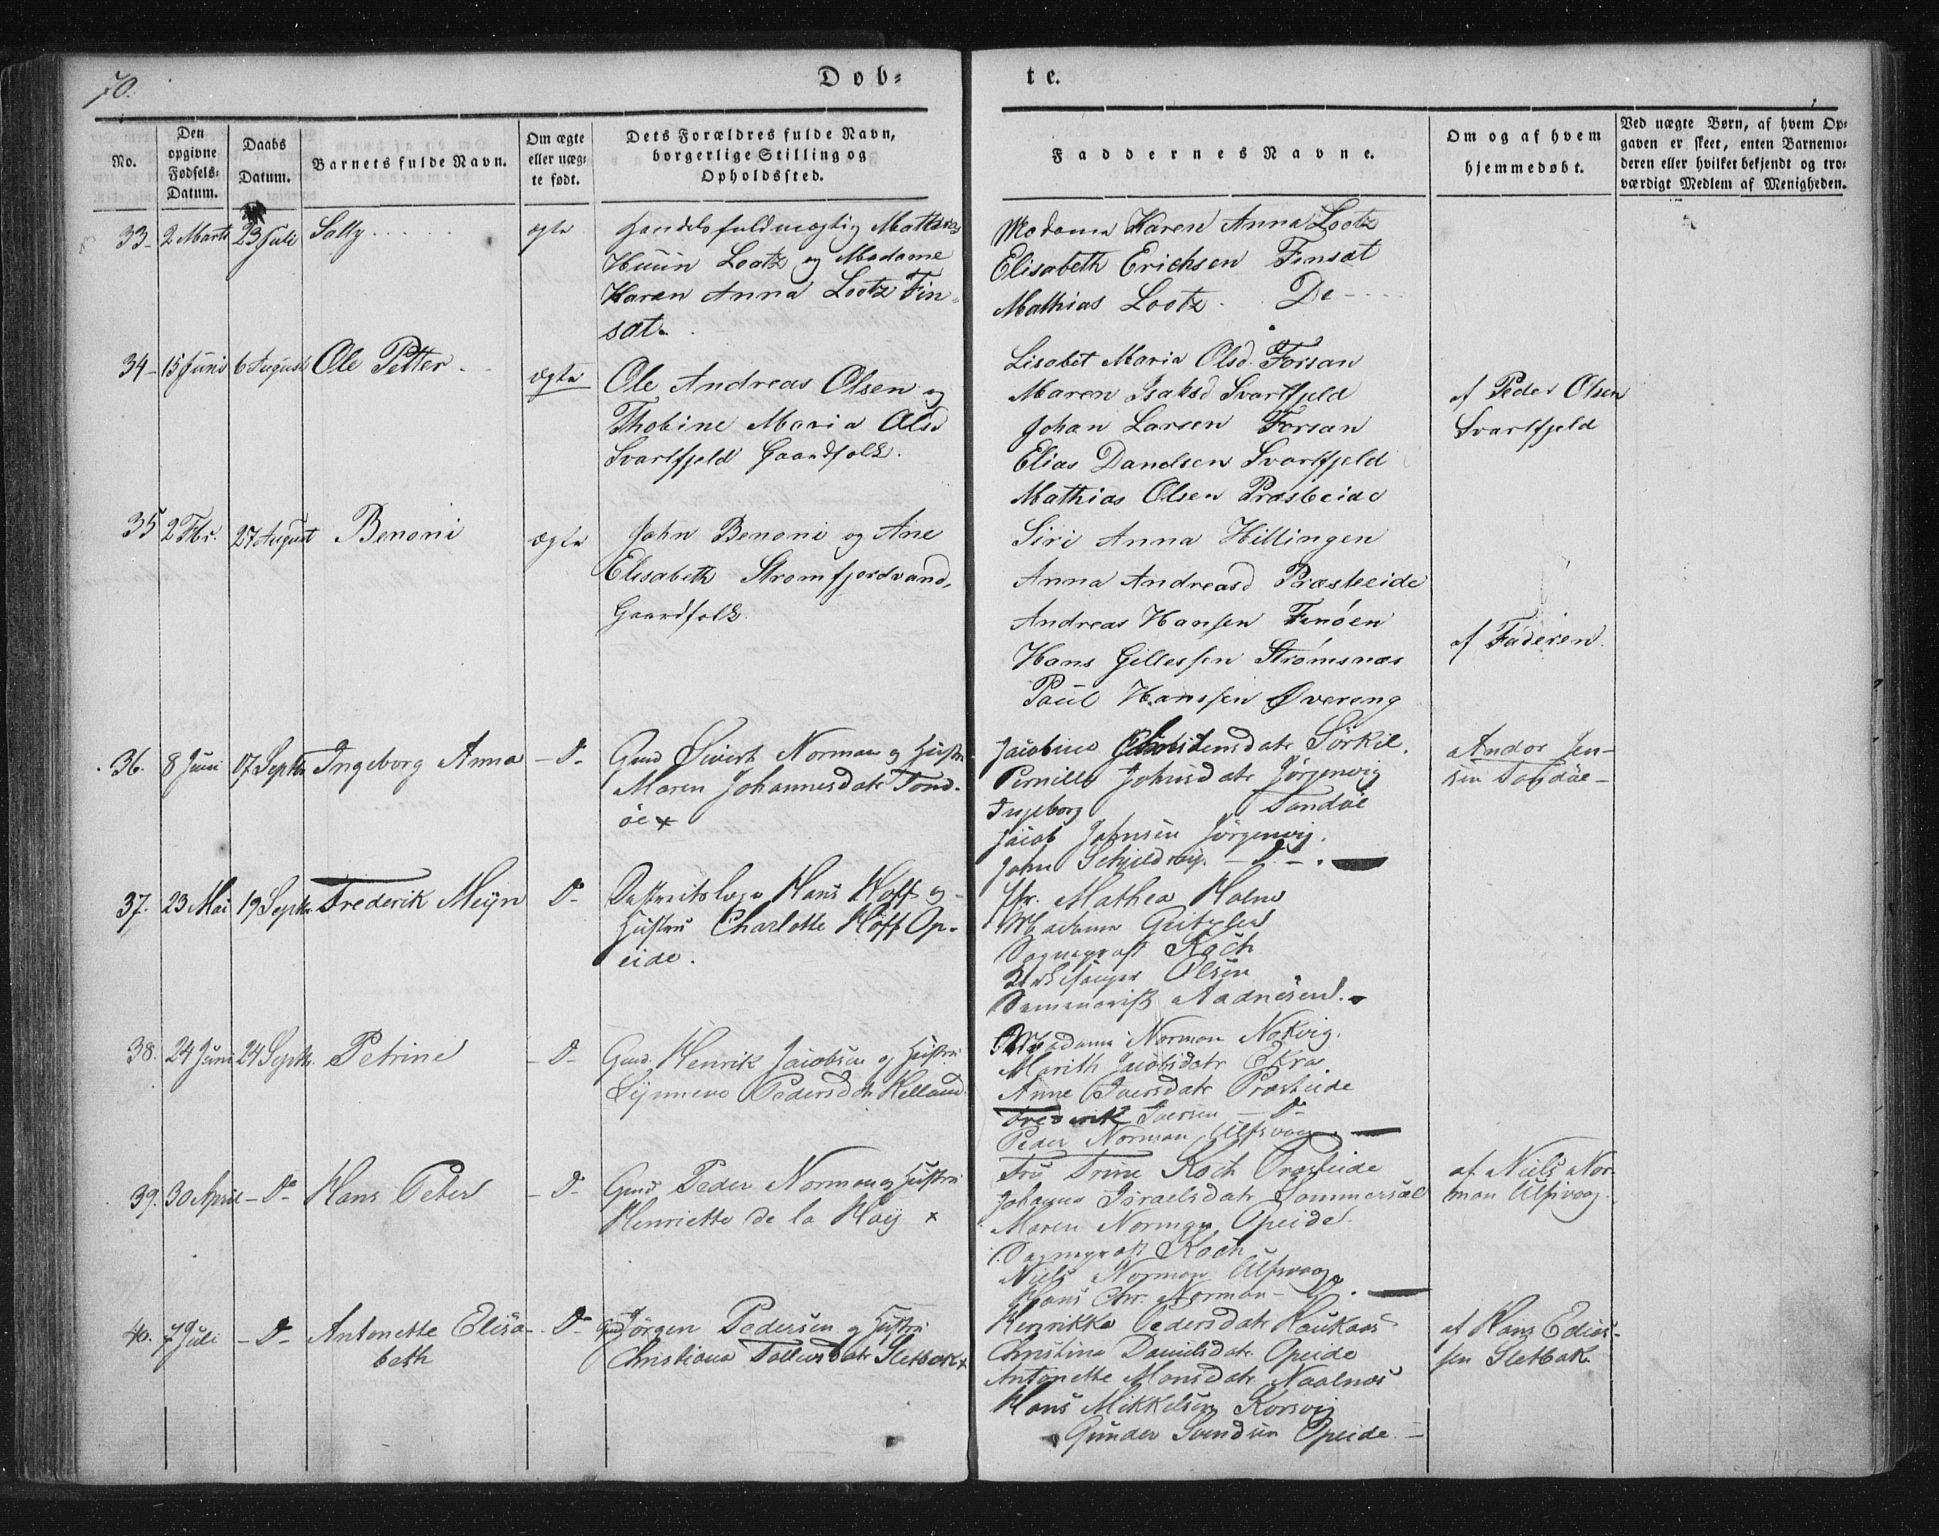 70.
Døb=
te.
No.
Den opgivne Fødsels-Datum.
Daabs Datum.
Barnets fulde Navn.
Om ægte eller uæg-te født.
Dets Forældres fulde Navn, borgerlige Stilling og Opholdssted.
Faddernes Navne.
Om og af hvem hjemmedøbt.
Ved uægte Børn, af hvem Op-gaven er skeet, enten Barnemo-deren eller hvilket bekjendt og tro-værdigt Medlem af Menigheden.
33 - 2 Marts 23 Juli Sally ..... ægte
Handelsfuldmægtig Mathias
Huun Lootz og Madame
Karen Anna Lootz Fin-
sæt.
Madama Karen Anna Lootz
Elisabeth Erichsen Finsæt
Mathias Lootz. De - ...
34 - 15 Juni 6 August Ole Petter - ægte
Ole Andreas Olsen og
Thobine Maria Olsd
Svartfjeld Gaardfolk.
Lisabet Maria Olsd. Forsan
Maren Isaksd Svartfjeld
Johan Larsen Forsan
Elias Danelsen Svartfjeld
Mathias Olsen Præsteide
af Peder Olsen
Svartfjeld
35 2 Fbr. 27 August Benoni ægte
John Benoni og Ane
Elisabeth Stromfjordvand,
Gaardfolk.
Siri Anna Hillingen
Anna Andreasd Præsteeide
Andreas Hansen Finøen
Hans Gillessen Strømsnæs
Paul Hanssen Øvereng
af Faderen.
36. 8 Juni 17 Septbr Ingeborg Anna - Do -
Gmd Sivert Norman og Hustru
Maren Johannesdatr Tond-
öe x
Jacobine Christensdatr Sörkil.
Pernille Johnsdatr Jørgenvig
Ingeborg Tandöe
Jacob Johnsen Jørgenvig.
John Schjeldrup - Do - .
a Andor Jen-
sen Tandöe -
37. 23 Mai 19 Septbr Frederik Meijn Do -
Districtslæge Hans Hoff og
Hustru Charlotte Hoff Op-
eide.
Fr. Mathea Holm
Madame
Sognepræst Koch
Kirkesanger Olsen
Seminarist Aadnesen.
38. 24 Juni 24 Septbr. Petrine - Do -
Gmd. Henrik Jacobsen og Hustru
Synneve Pedersdatr Helland.
Madame Norman Nokvig.
Marith Jacobsdatr Skra
Anne Iversdatr Præsteide
Frederik Iversen - Do -
Peder Norman Ulfsvaag.
39. 30 April - Do - Hans Peter - Do -
Gmd Peder Norman og Hustru
Henriette de la Haij x
Fru Trine Koch Præsteide
Johanna Israelsdatr Sommersæl
Maren Norman Opeide.
Sognepræst Koch
Niels Norman Ulfsvaag
Hans Chr. Norman - Do.
af Niels Nor-
man Ulfsvaag.
40. 7 Juli - Do - Antonette Elisa- - Do -
beth
Gmd Jörgen Pedersen og Hustru
Christiana Tollevsdatr Sletbak x
Henrikke Pedersdatr Haukaas
Christina Danielsdatr Opeide
Antonette Monsdatr Naalnæs
Hans Mikkelsen Korsvig
Gunder Sandsen Opeide. -
af Hans Edias-
sen Sletbak.